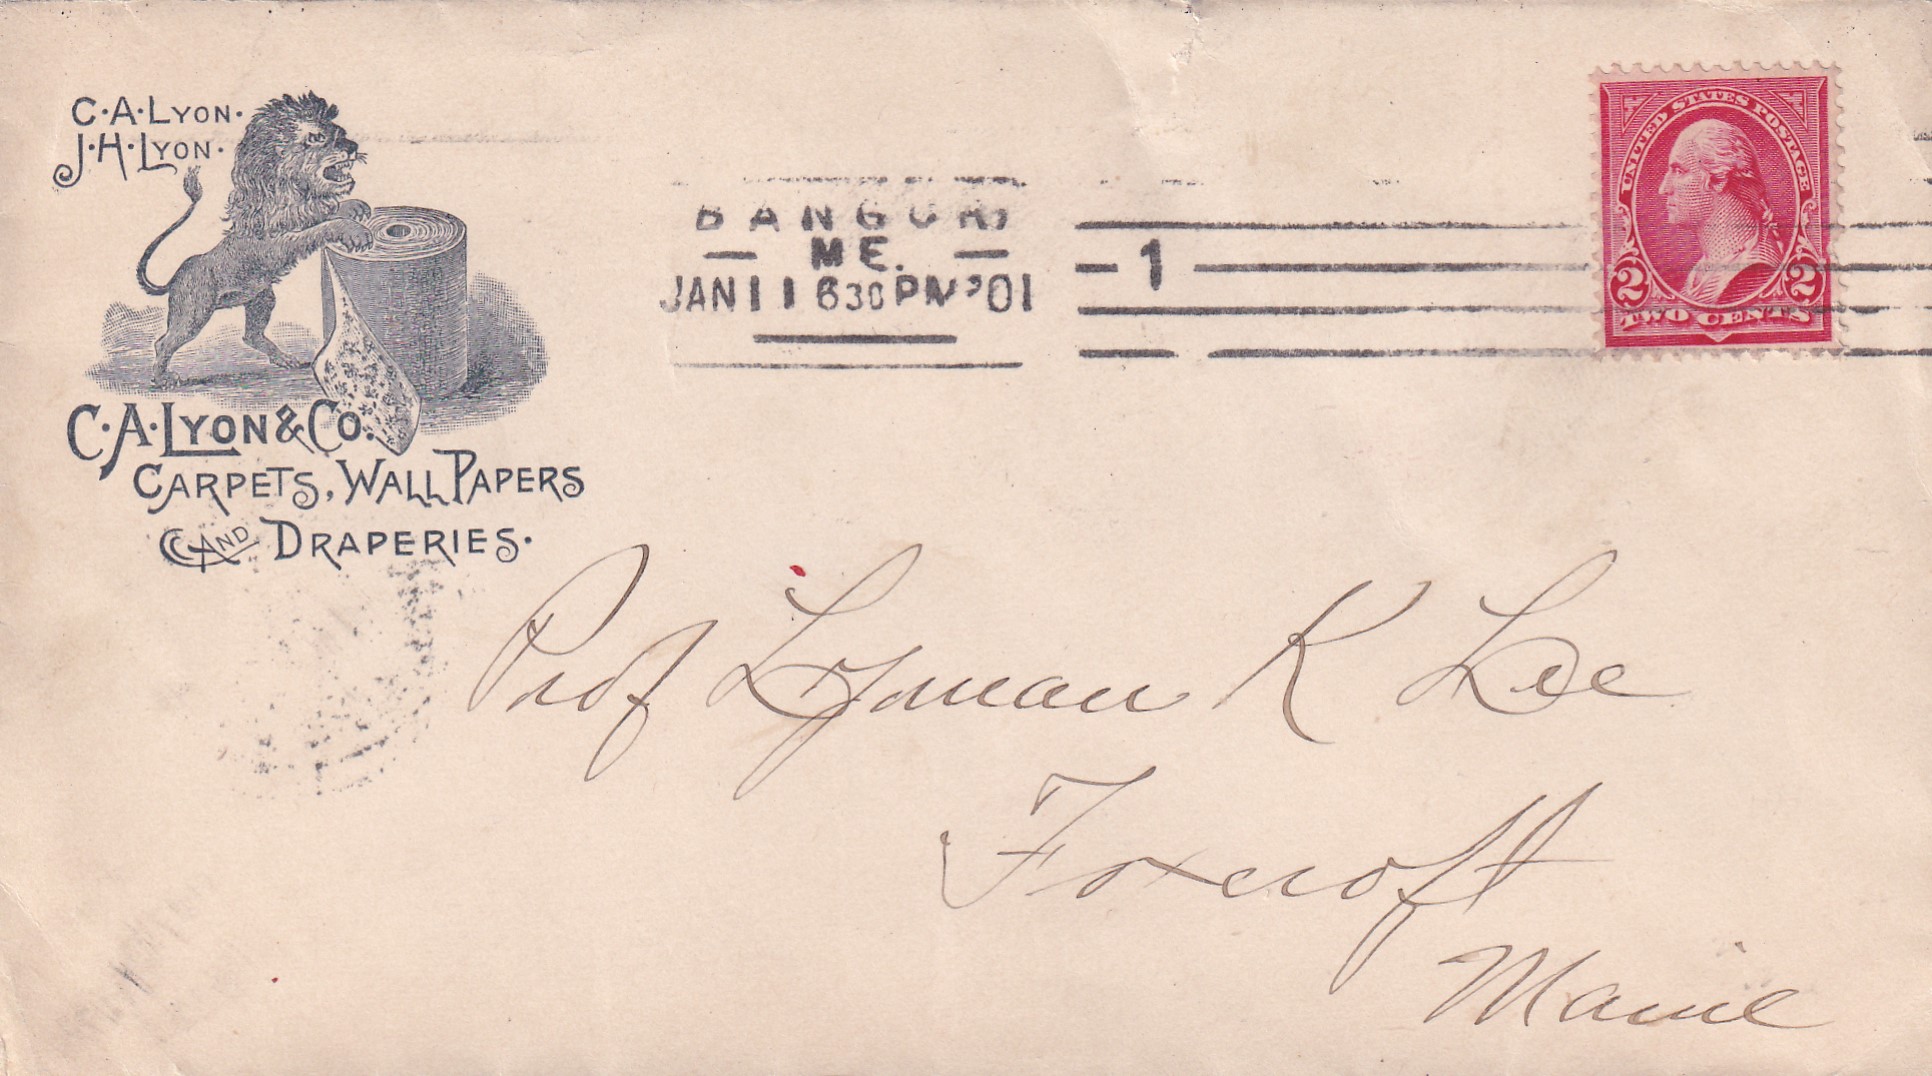 C·A·LYON·
J·H·LYON·
C·A·LYON & CO.
CARPETS, WALL PAPERS
AND DRAPERIES·
BANGOR,
ME.
JAN 11 630 PM '01
1
UNITED STATES POSTAGE
2 2
TWO CENTS
Prof Lyman K Lee
Foxcroft
Maine